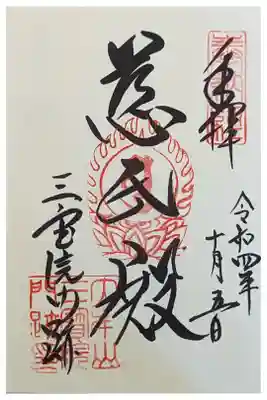 奉拝
令和四年
十月五日
慈氏殿
三宝院門跡